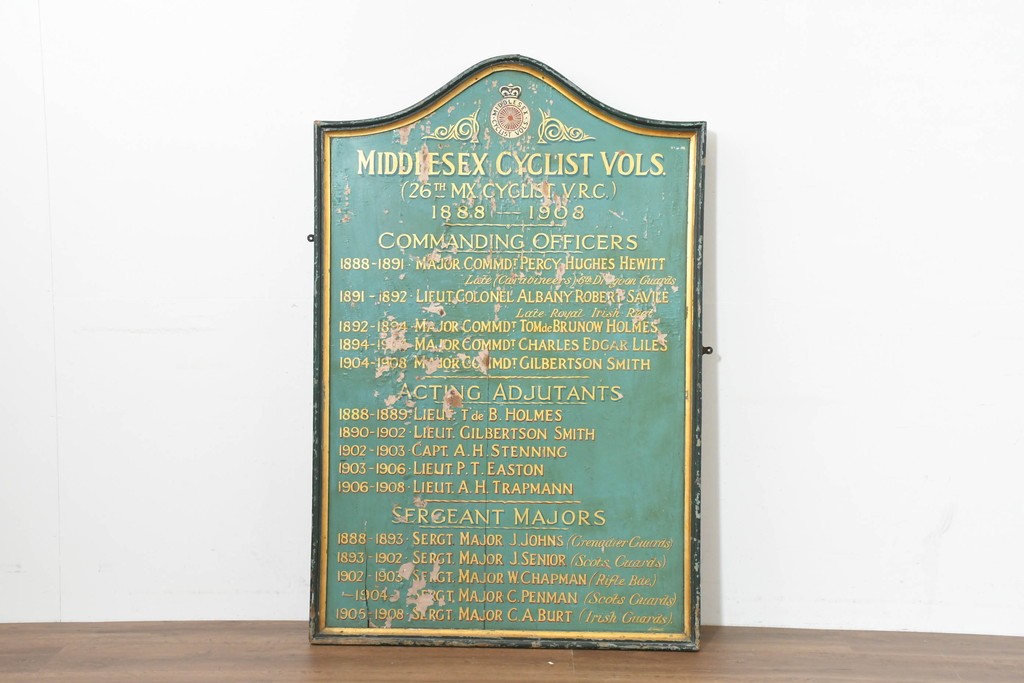 MIDDLESEX
CYCLIST VOLS.
MIDDLESEX CYCLIST VOLS.
(26TH MX CYCLIST V.R.C.)
1888 — 1908
COMMANDING OFFICERS
1888-1891 · MAJOR COMMDT PERCY HUGHES HEWITT
Late (Carabineers) 6th Dragoon Guards
1891-1892 · LIEUT. COLONEL ALBANY ROBERT SAVILE
Late Royal Irish Regt
1892-1894 · MAJOR COMMDT TOM de BRUNOW HOLMES
1894- MAJOR COMMDT CHARLES EDGAR LILES
1904-1908 MAJOR COMMDT GILBERTSON SMITH
ACTING ADJUTANTS
1888-1889 · LIEUT. T de B. HOLMES
1890-1902 · LIEUT. GILBERTSON SMITH
1902-1903 · CAPT. A. H. STENNING
1903-1906 · LIEUT. P. T. EASTON
1906-1908 · LIEUT. A. H. TRAPMANN
SERGEANT MAJORS
1888-1893 · SERGT. MAJOR J. JOHNS (Grenadier Guards)
1893-1902 · SERGT. MAJOR J. SENIOR (Scots Guards)
1902-1903 · SERGT. MAJOR W. CHAPMAN (Rifle Bde)
-1904 SERGT. MAJOR C. PENMAN (Scots Guards)
1905-1908 · SERGT. MAJOR C. A. BURT (Irish Guards)